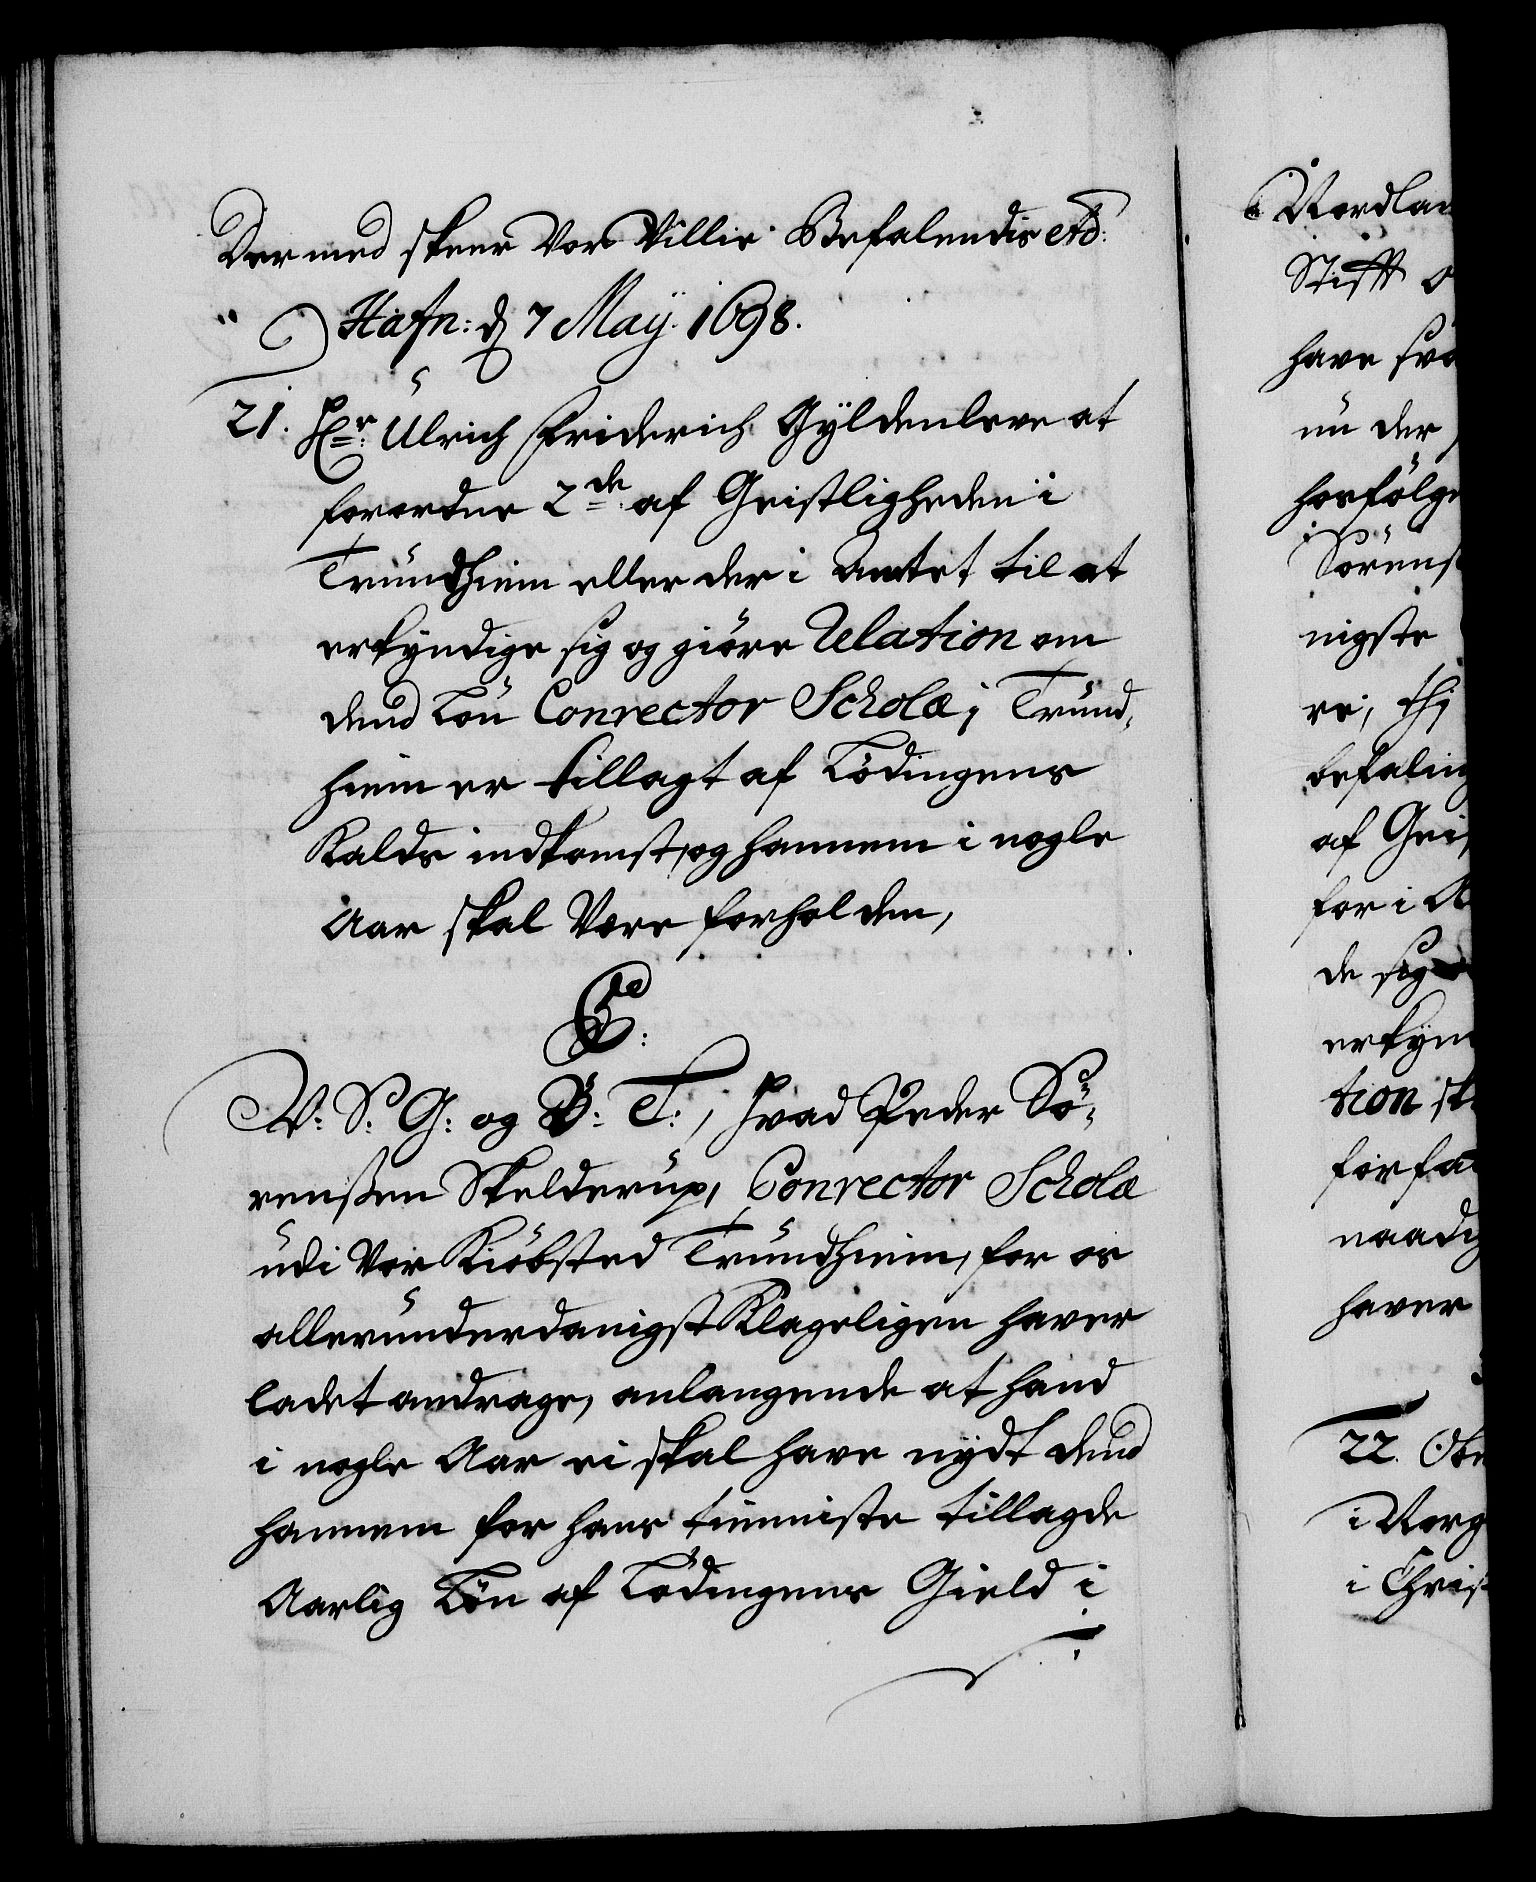 Dermed skeer Vor Villie Befalendis etc:
Hafn: d 7 Maÿ. 1698.
21. Hr: Ulrich Friderich Gÿldenleve at
forordne 2de af Geistligheden i
Trundhiem eller der i Amtet til at
erkyndige sig og giöre Relation om
dend Lön Conrector Scholæ i Trund,
hiem er tillagt af Lödingens
Kalds indkomst, og hannem i nogle
Aar skal Være forholden,
C5:
V: S: G: og B: T:, hvad Peder Sö,
renßen Skelderup, Conrector Scholæ
udi Vor Kiöbsted Trundhiem, for os
allerunderdanigst Klageligen haver
ladet andrage, anlangende at hand
i nogle Aar ei skal have nÿdt dend
hannem for hans tienniste tillagde
Aarlig Lön af Lödingens Gield i
i Nordlan
Stifft o
have sva
nu der
forfölge
Sörens
nigste
re, thi
befaling
af Geis
for i A
de sig
erkyn
tion sk
forfa
naadig
haver
22. Obe
i Norg
i Christ